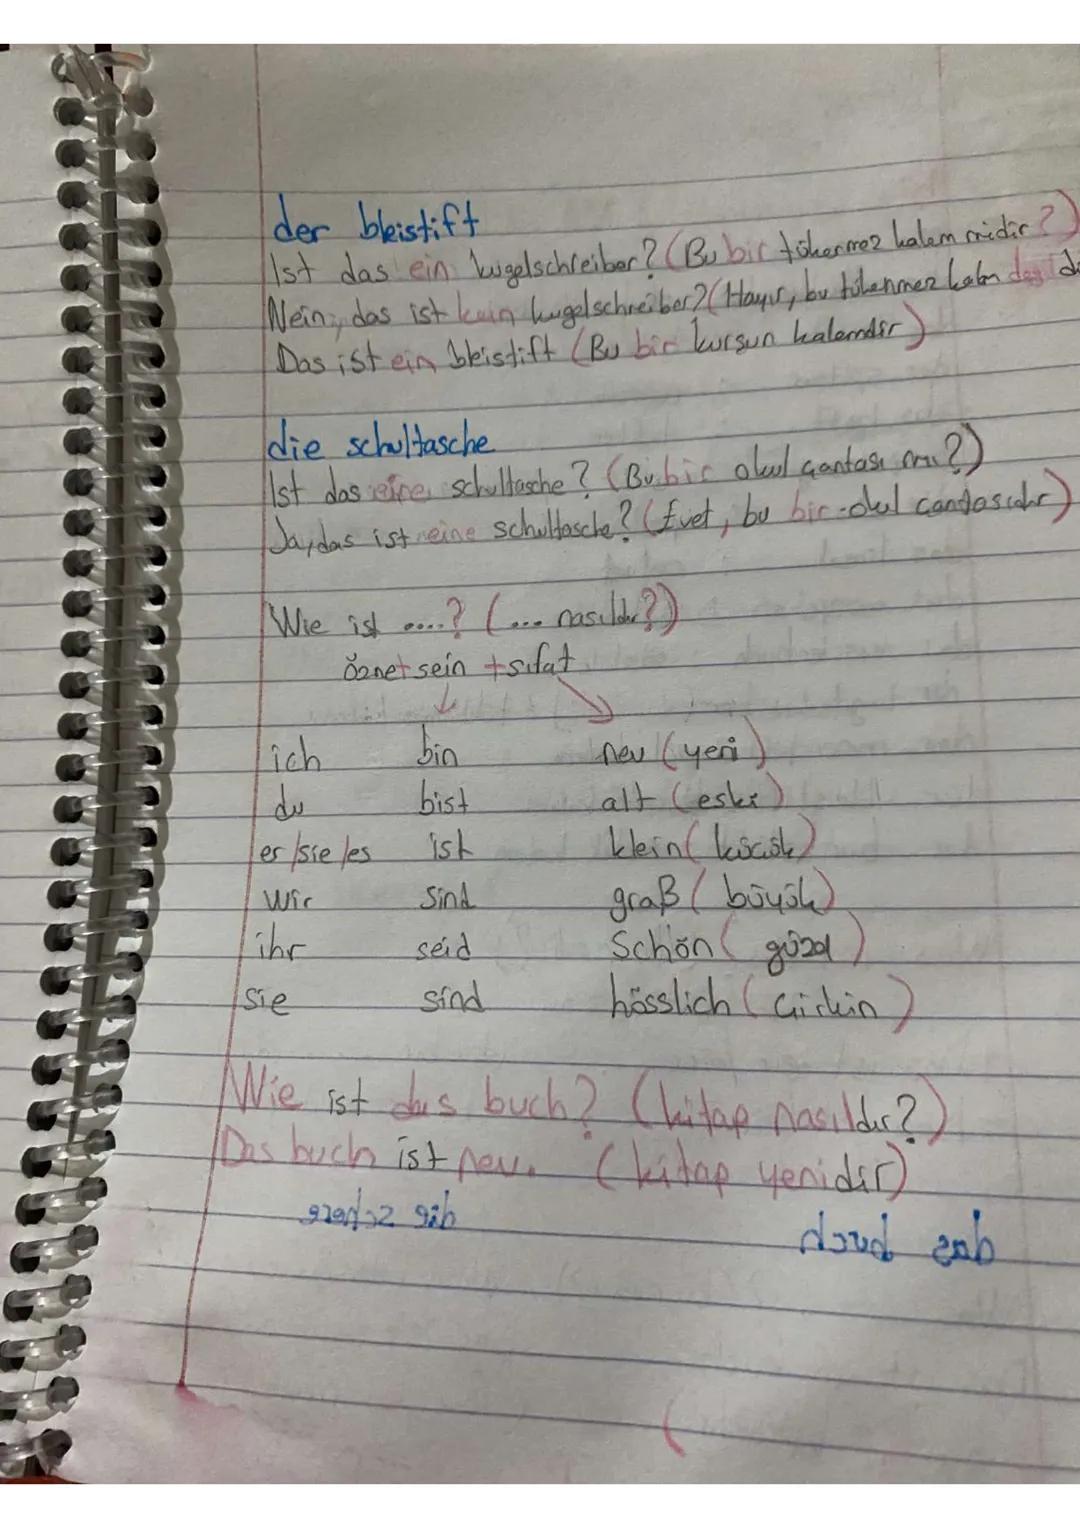 der bleistift
Ist das ein kugelschreiber? (Bu bir tükenmez kalem midir?)
Nein, das ist kein kugelschreiber? (Hayır, bu tükenmez kalem değildi
Das ist ein bleistift (Bu bir kurşun kalemdir)
die schultasche
Ist das eine schultasche? (Bu bir okul çantası mı?)
Ja, das ist eine schultasche? (Evet, bu bir okul çantasıdır)
Wie ist ....? (... nasıldır?)
özne+ sein + sıfat
ich bin neu (yeni)
du bist alt (eski)
er/sie/es ist klein (küçük)
wir sind graß (büyük)
ihr seid Schön (güzel)
sie sind hösslich (Çirkin)
Wie ist das buch? (kitap nasıldır?)
Das buch ist neu. (kitap yenidir)
die schere das buch